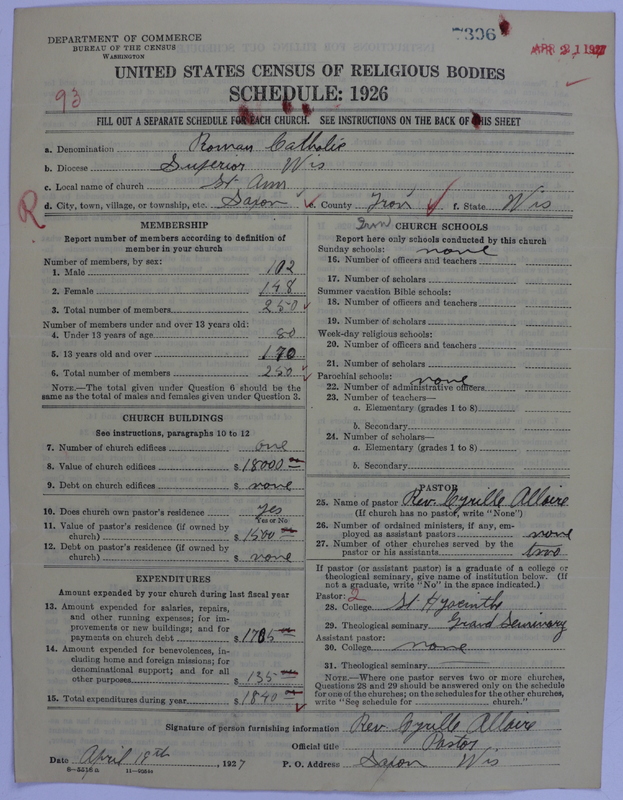 DEPARTMENT OF COMMERCE
BUREAU OF THE CENSUS
WASHINGTON
APR 21 1927
UNITED STATES CENSUS OF RELIGIOUS BODIES
SCHEDULE: 1926
93
FILL OUT A SEPARATE SCHEDULE FOR EACH CHURCH. SEE INSTRUCTIONS ON THE BACK OF THIS SHEET
a. Denomination Roman Catholic
b. Diocese Superior Wis
c. Local name of church St Ann
R
d. City, town, village, or township, etc. Saxon e. County Iron f. State Wis
Iron
MEMBERSHIP
Report number of members according to definition of
member in your church
Number of members, by sex:
1. Male 102
2. Female 148
3. Total number of members 250
Number of members under and over 13 years old:
4. Under 13 years of age 80
5. 13 years old and over 170
6. Total number of members 250
NOTE.—The total given under Question 6 should be
same as the total of males and females given under Question 3.
CHURCH BUILDINGS
See instructions, paragraphs 10 to 12
7. Number of church edifices one
8. Value of church edifices $ 18000
9. Debt on church edifices $ none
10. Does church own pastor's residence yes
Yes or No
11. Value of pastor's residence (if owned by
church) $ 1500
12. Debt on pastor's residence (if owned by
church) $ none
EXPENDITURES
Amount expended by your church during last fiscal year
13. Amount expended for salaries, repairs,
and other running expenses; for im-
provements or new buildings; and for
payments on church debt $ 1705
14. Amount expended for benevolences, in-
cluding home and foreign missions; for
denominational support; and for all
other purposes $ 135
15. Total expenditures during year $ 1840
CHURCH SCHOOLS
Report here only schools conducted by this church
Sunday schools: none
16. Number of officers and teachers
17. Number of scholars
Summer vacation Bible schools:
18. Number of officers and teachers
19. Number of scholars
Week-day religious schools:
20. Number of officers and teachers
21. Number of scholars
Parochial schools: none
22. Number of administrative officers
23. Number of teachers—
a. Elementary (grades 1 to 8)
b. Secondary
24. Number of scholars—
a. Elementary (grades 1 to 8)
b. Secondary
PASTOR
25. Name of pastor Rev. Cyrille Allaire
(If church has no pastor, write "None")
26. Number of ordained ministers, if any, em-
ployed as assistant pastors none
27. Number of other churches served by the
pastor or his assistants two
If pastor (or assistant pastor) is a graduate of a college or
theological seminary, give name of institution below. (If
not a graduate, write "No" in the space indicated.)
Pastor: 2
28. College St Hyacinthe
29. Theological seminary Grand Seminary
Assistant pastor:
30. College none
31. Theological seminary
NOTE.—Where one pastor serves two or more churches,
Questions 28 and 29 should be answered only on the schedule
for one of the churches; on the schedules for the other churches,
write "See schedule for church."
Signature of person furnishing information Rev. Cyrille Allaire
Official title Pastor
Date April 19th, 1927 P. O. Address Saxon Wis